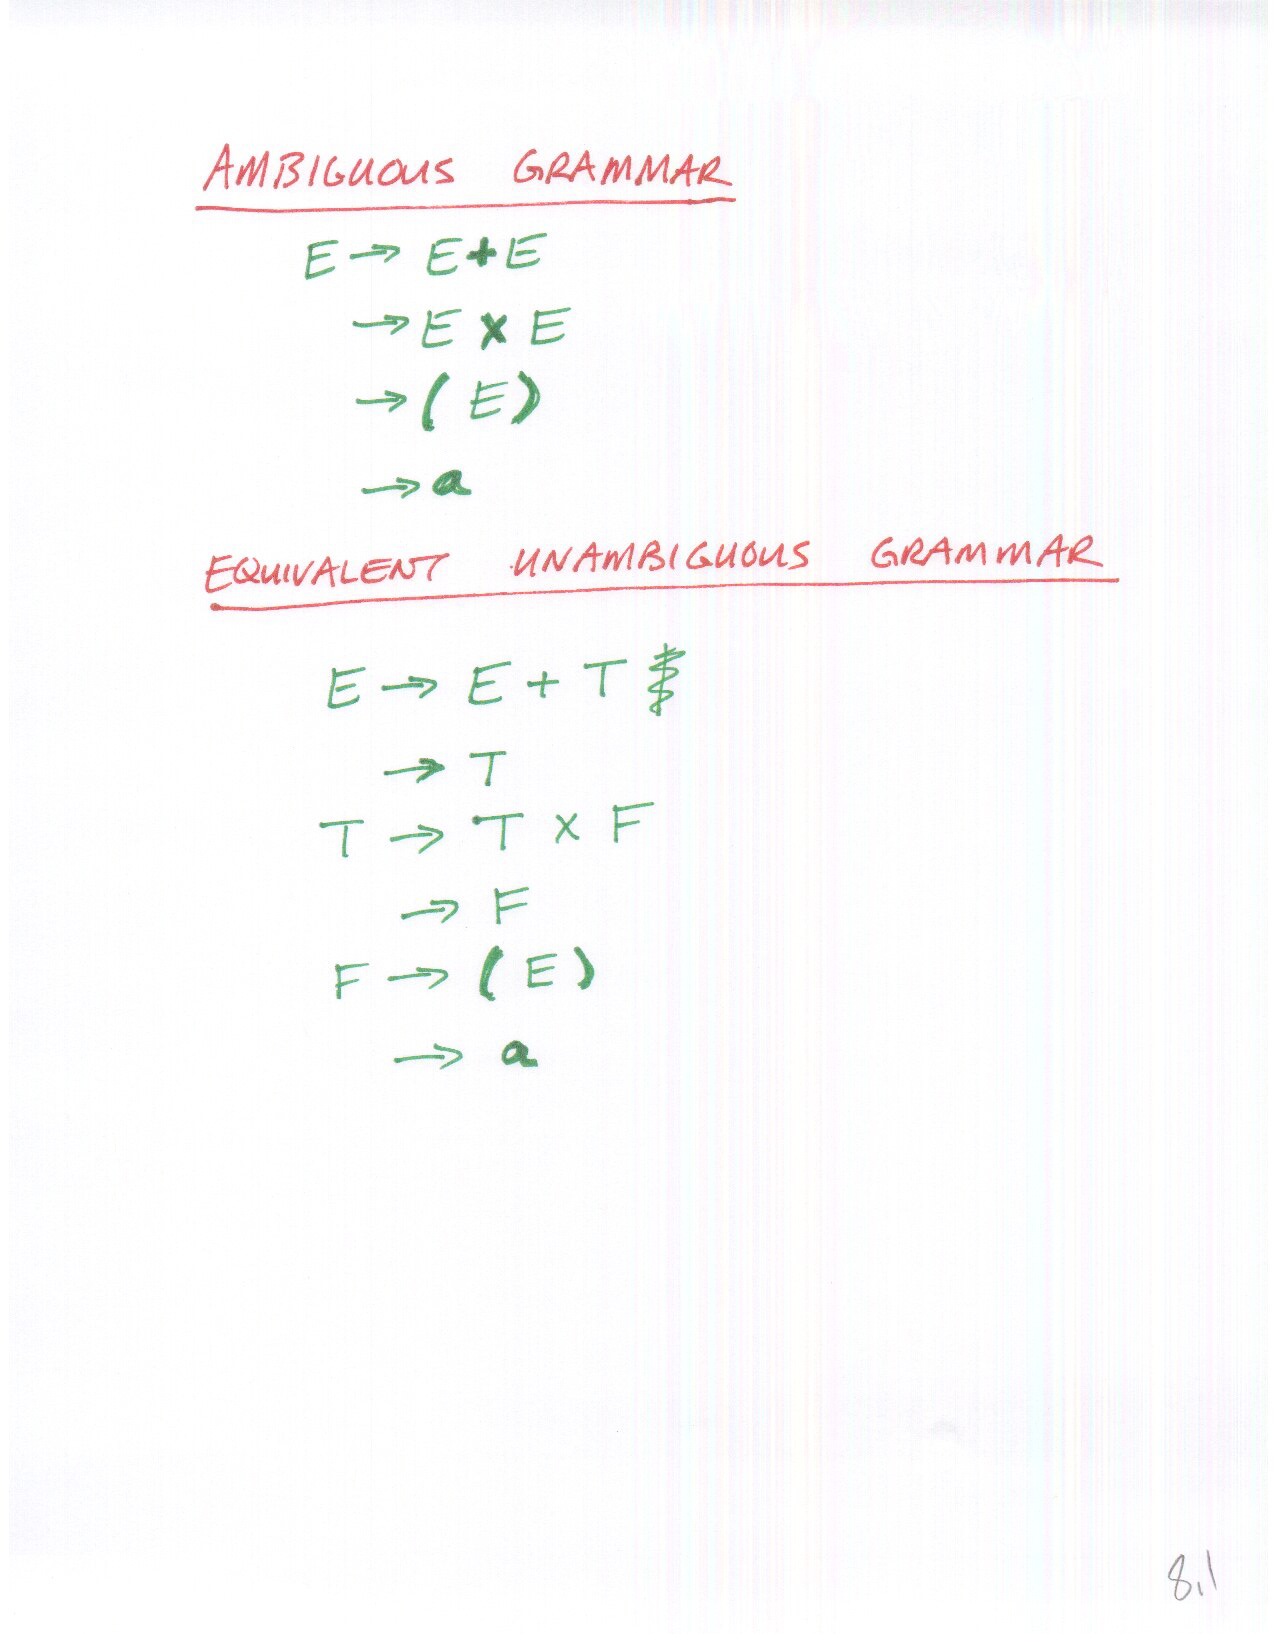 AMBIGUOUS GRAMMAR
E → E + E
→ E × E
→ ( E )
→ a
EQUIVALENT UNAMBIGUOUS GRAMMAR
E → E + T
→ T
T → T × F
→ F
F → ( E )
→ a
8.1